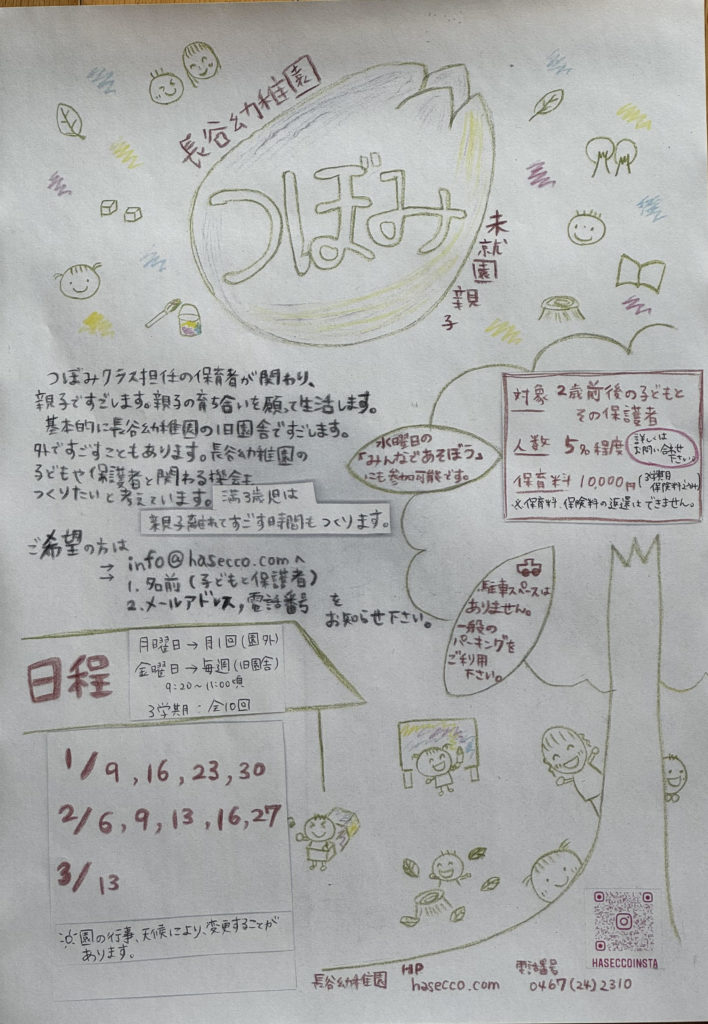 長谷幼稚園
つぼみ
未就園親子
つぼみクラス担任の保育者が関わり、
親子ですごします。親子の育ち合いを願って生活します。
基本的に長谷幼稚園の旧園舎ですごします。
外ですごすこともあります。長谷幼稚園の
子どもや保護者と関わる機会も
つくりたいと考えています。満3歳児は
親子離れてすごす時間もつくります。
水曜日の
「みんなであそぼう」
にも参加可能です。
対象 2歳前後の子どもと
その保護者
人数 5名程度
詳しくは
お問い合せ
下さい
保育料 10,000円(3学期
保険料込み)
※保育料、保険料の返還はできません。
ご希望の方は
→ info@hasecco.comへ
→ 1.名前(子どもと保護者)
2.メールアドレス,電話番号 を
お知らせ下さい。
駐車スペースは
ありません。
一般の
パーキングを
ご利用
下さい。
日程
月曜日→月1回(園外)
金曜日→毎週(旧園舎)
9:20~11:00頃
3学期:全10回
1/9,16,23,30
2/6,9,13,16,27
3/13
※園の行事、天候により、変更することが
あります。
HASECCOINSTA
長谷幼稚園 HP hasecco.com 電話番号 0467(24)2310